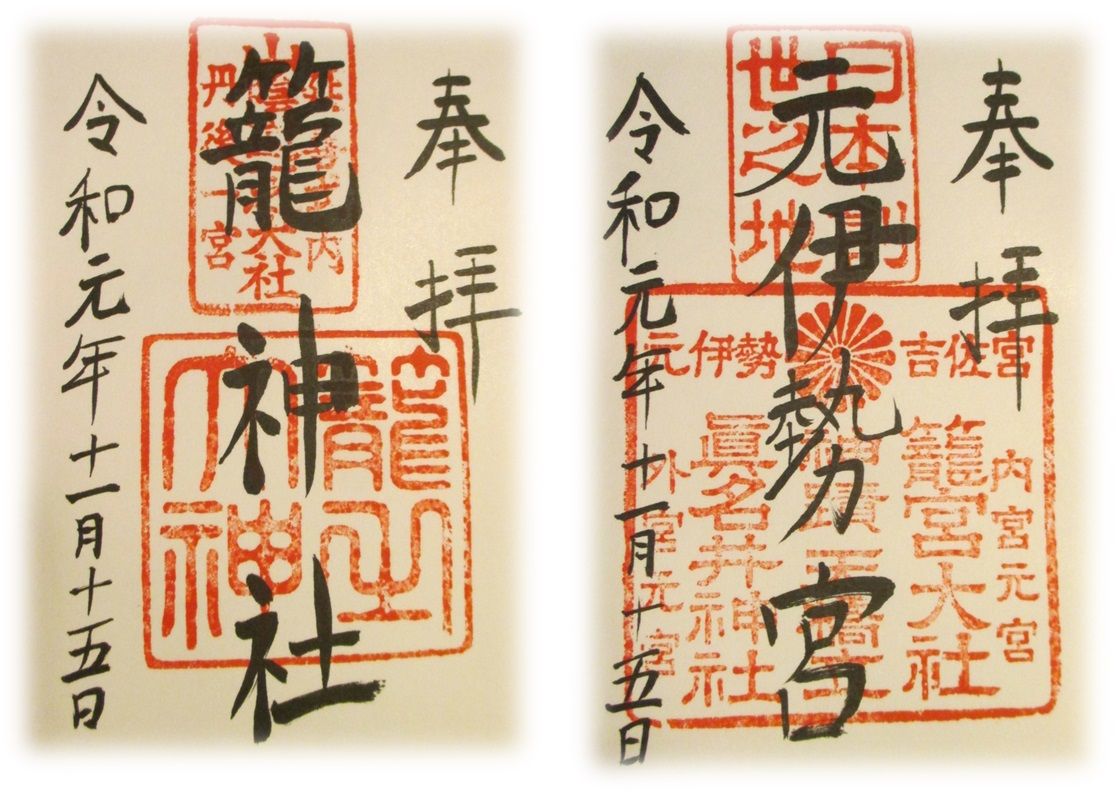 奉拝
籠神社
令和元年十一月十五日
丹後一宮
籠之
大神
奉拝
元伊勢宮
令和元年十一月十五日
日本
世之地
元伊勢 吉佐宮
内宮元宮
籠宮大社
眞名井神社
外宮元宮